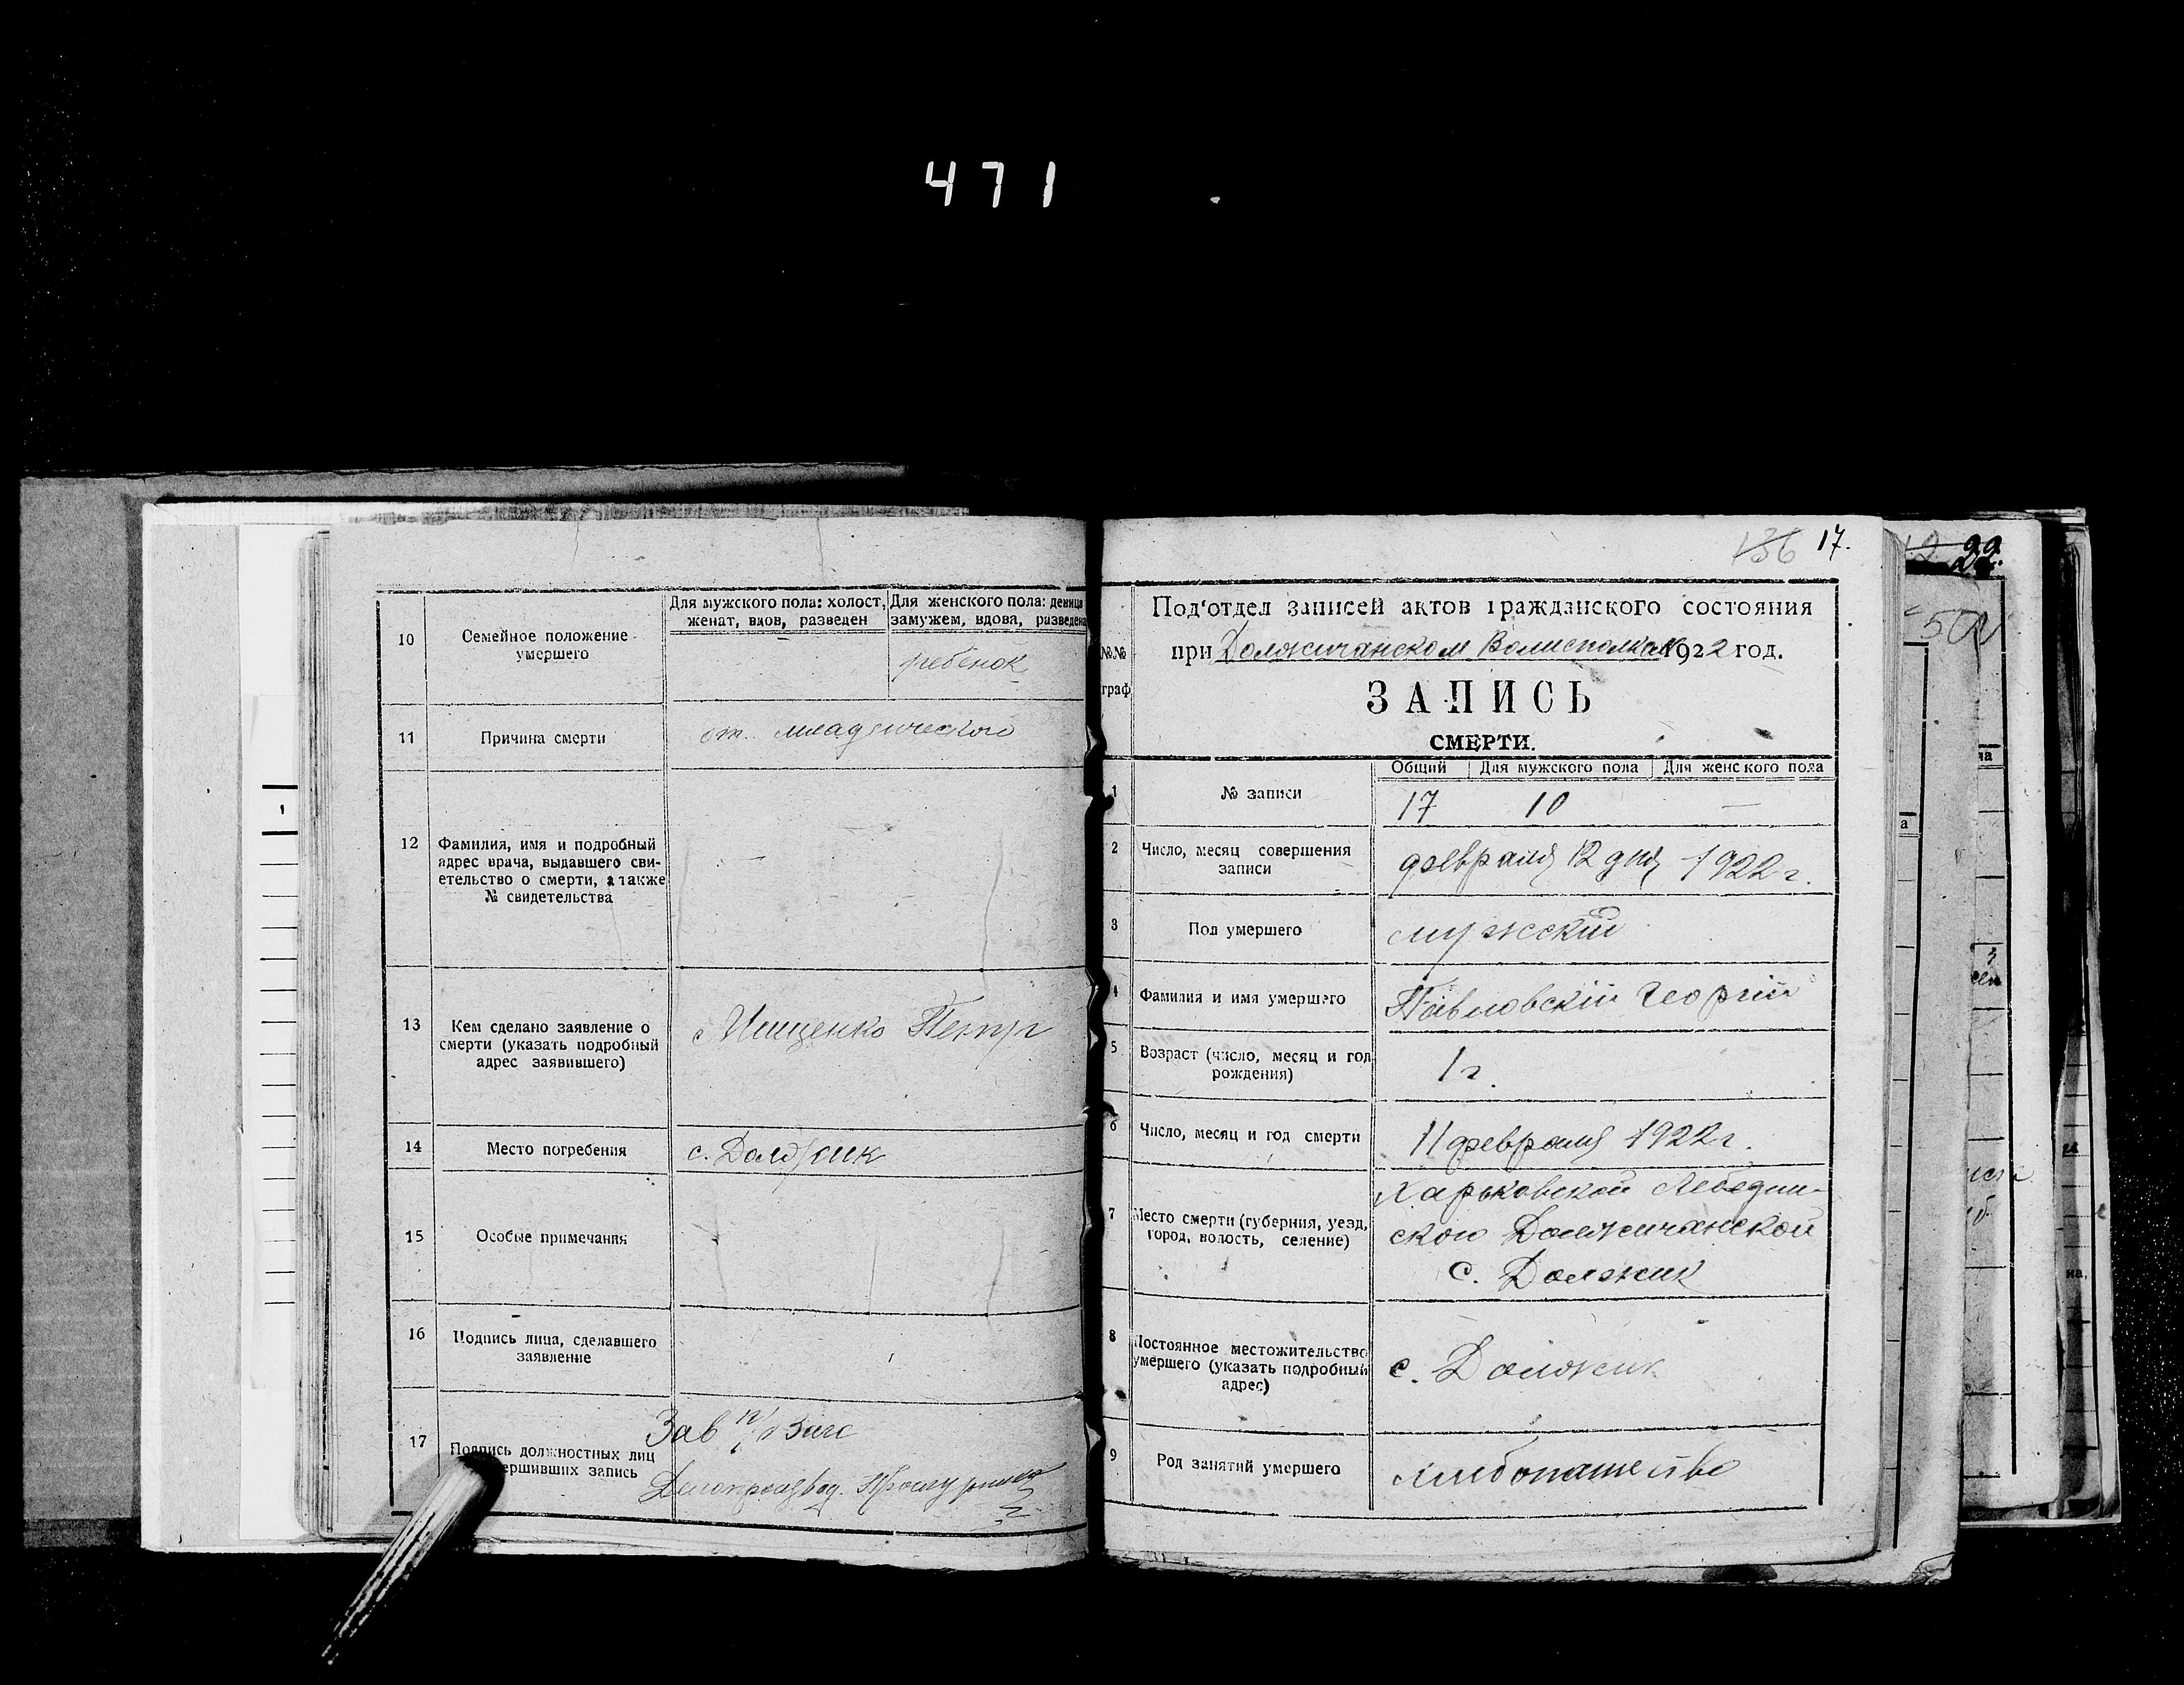 471
10
Семейное положение
умершего
Для мужского пола: холост,
женат, вдов, разведен
Для женского пола: девица
замужем, вдова, разведена
—
ребенок
11
Причина смерти
от младенческого
12
Фамилия, имя и подробный
адрес врача, выдавшего сви-
етельство о смерти, а также
№ свидетельства
13
Кем сделано заявление о
смерти (указать подробный
адрес заявившего)
Мищенко Петр
14
Место погребения
с. Должик
15
Особые примечания
16
Подпись лица, сделавшего
заявление
17
Подпись должностных лиц
ершивших запись
Зав п/Загс
Делопроизвод.
136 17.
Под'отдел записей актов гражданского состояния
при Должичанском Волисполком 1922 год.
№№
граф
ЗАПИСЬ
СМЕРТИ.
Общий Для мужского пола Для женского пола
1
№ записи
17 10 —
2
Число, месяц совершения
записи
февраля 12 дня 1922 г.
3
Пол умершего
мужский
4
Фамилия и имя умершего
Павловский Георгий
5
Возраст (число, месяц и год
рождения)
1 г.
6
Число, месяц и год смерти
11 февраля 1922 г.
7
Место смерти (губерния, уезд,
город, волость, селение)
Харьковской Лебедин-
ского Должичанской
с. Должик
8
Постоянное местожительство
умершего (указать подробный
адрес)
с. Должик
9
Род занятий умершего
хлебопашество